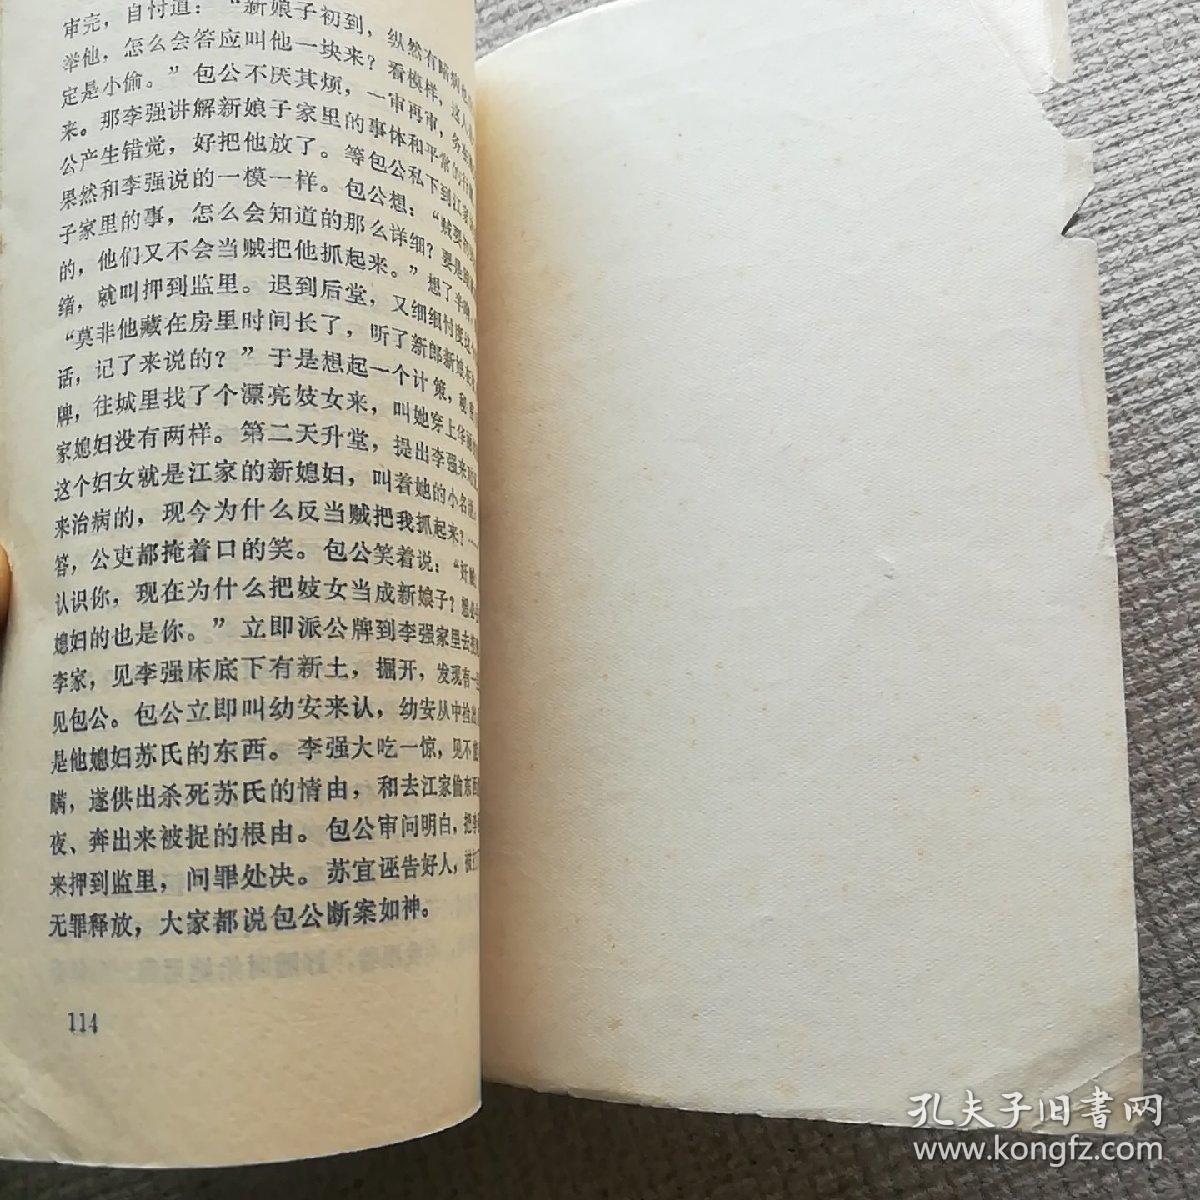 审完，自忖道：“新娘子初到，纵然有暗病他
举他，怎么会答应叫他一块来？看模样，这人
定是小偷。”包公不厌其烦，一审再审，务
来。那李强讲解新娘子家里的事体和平常的行
公产生错觉，好把他放了。等包公私下到江家
果然和李强说的一模一样。包公想：“贼要
子家里的事，怎么会知道的那么详细？要是
的，他们又不会当贼把他抓起来。”想了半晌，
绪，就叫押到监里。退到后堂，又细细忖度这个
“莫非他藏在房里时间长了，听了新郎新娘
话，记了来说的？”于是想起一个计策，
牌，往城里找了个漂亮妓女来，叫她穿上华
家媳妇没有两样。第二天升堂，提出李强来
这个妇女就是江家的新媳妇，叫着她的小名
来治病的，现今为什么反当贼把我抓起来？
答，公吏都掩着口的笑。包公笑着说：
认识你，现在为什么把妓女当成新娘子？想
媳妇的也是你。”立即派公牌到李强家里去
李家，见李强床底下有新土，掘开，发现有一
见包公。包公立即叫幼安来认，幼安从中捡出
是他媳妇苏氏的东西。李强大吃一惊，见不能
瞒，遂供出杀死苏氏的情由，和去江家偷东西
夜、奔出来被捉的根由。包公审问明白，把李
来押到监里，问罪处决。苏宜诬告好人，被
无罪释放，大家都说包公断案如神。
114
孔夫子旧书网
www.kongfz.com